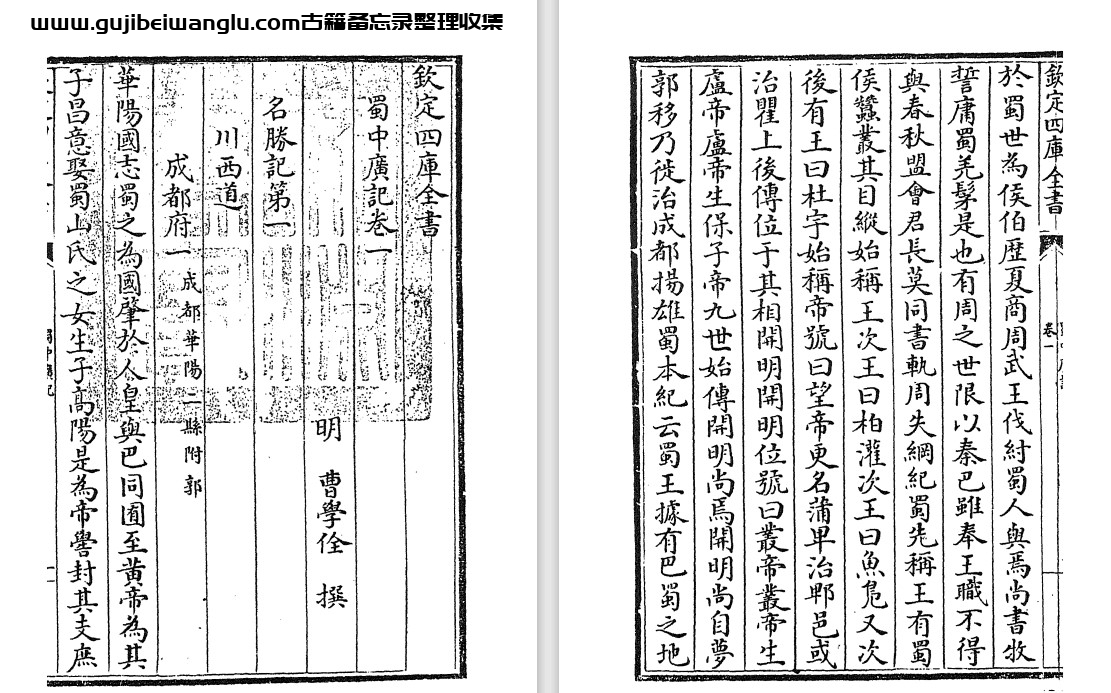 www.gujibeiwanglu.com古籍备忘录整理收集
欽定四庫全書
蜀中廣記卷一
明 曹學佺 撰
名勝記第一
川西道
成都府一 成都華陽二縣附郭
華陽國志蜀之為國肇於人皇與巴同囿至黄帝為其
子昌意娶蜀山氏之女生子髙陽是為帝嚳封其支庶
欽定四庫全書
卷一
於蜀世為侯伯歴夏商周武王伐紂蜀人與焉尚書牧
誓庸蜀羌髳是也有周之世限以秦巴雖奉王職不得
與春秋盟會君長莫同書軌周失綱紀蜀先稱王有蜀
侯蠶叢其目縱始稱王次王曰柏灌次王曰魚凫又次
後有王曰杜宇始稱帝號曰望帝更名蒲卑治郫邑或
治瞿上後傳位于其相開明開明位號曰叢帝叢帝生
盧帝盧帝生保子帝九世始傳開明尚焉開明尚自夢
郭移乃徙治成都揚雄蜀本紀云蜀王據有巴蜀之地